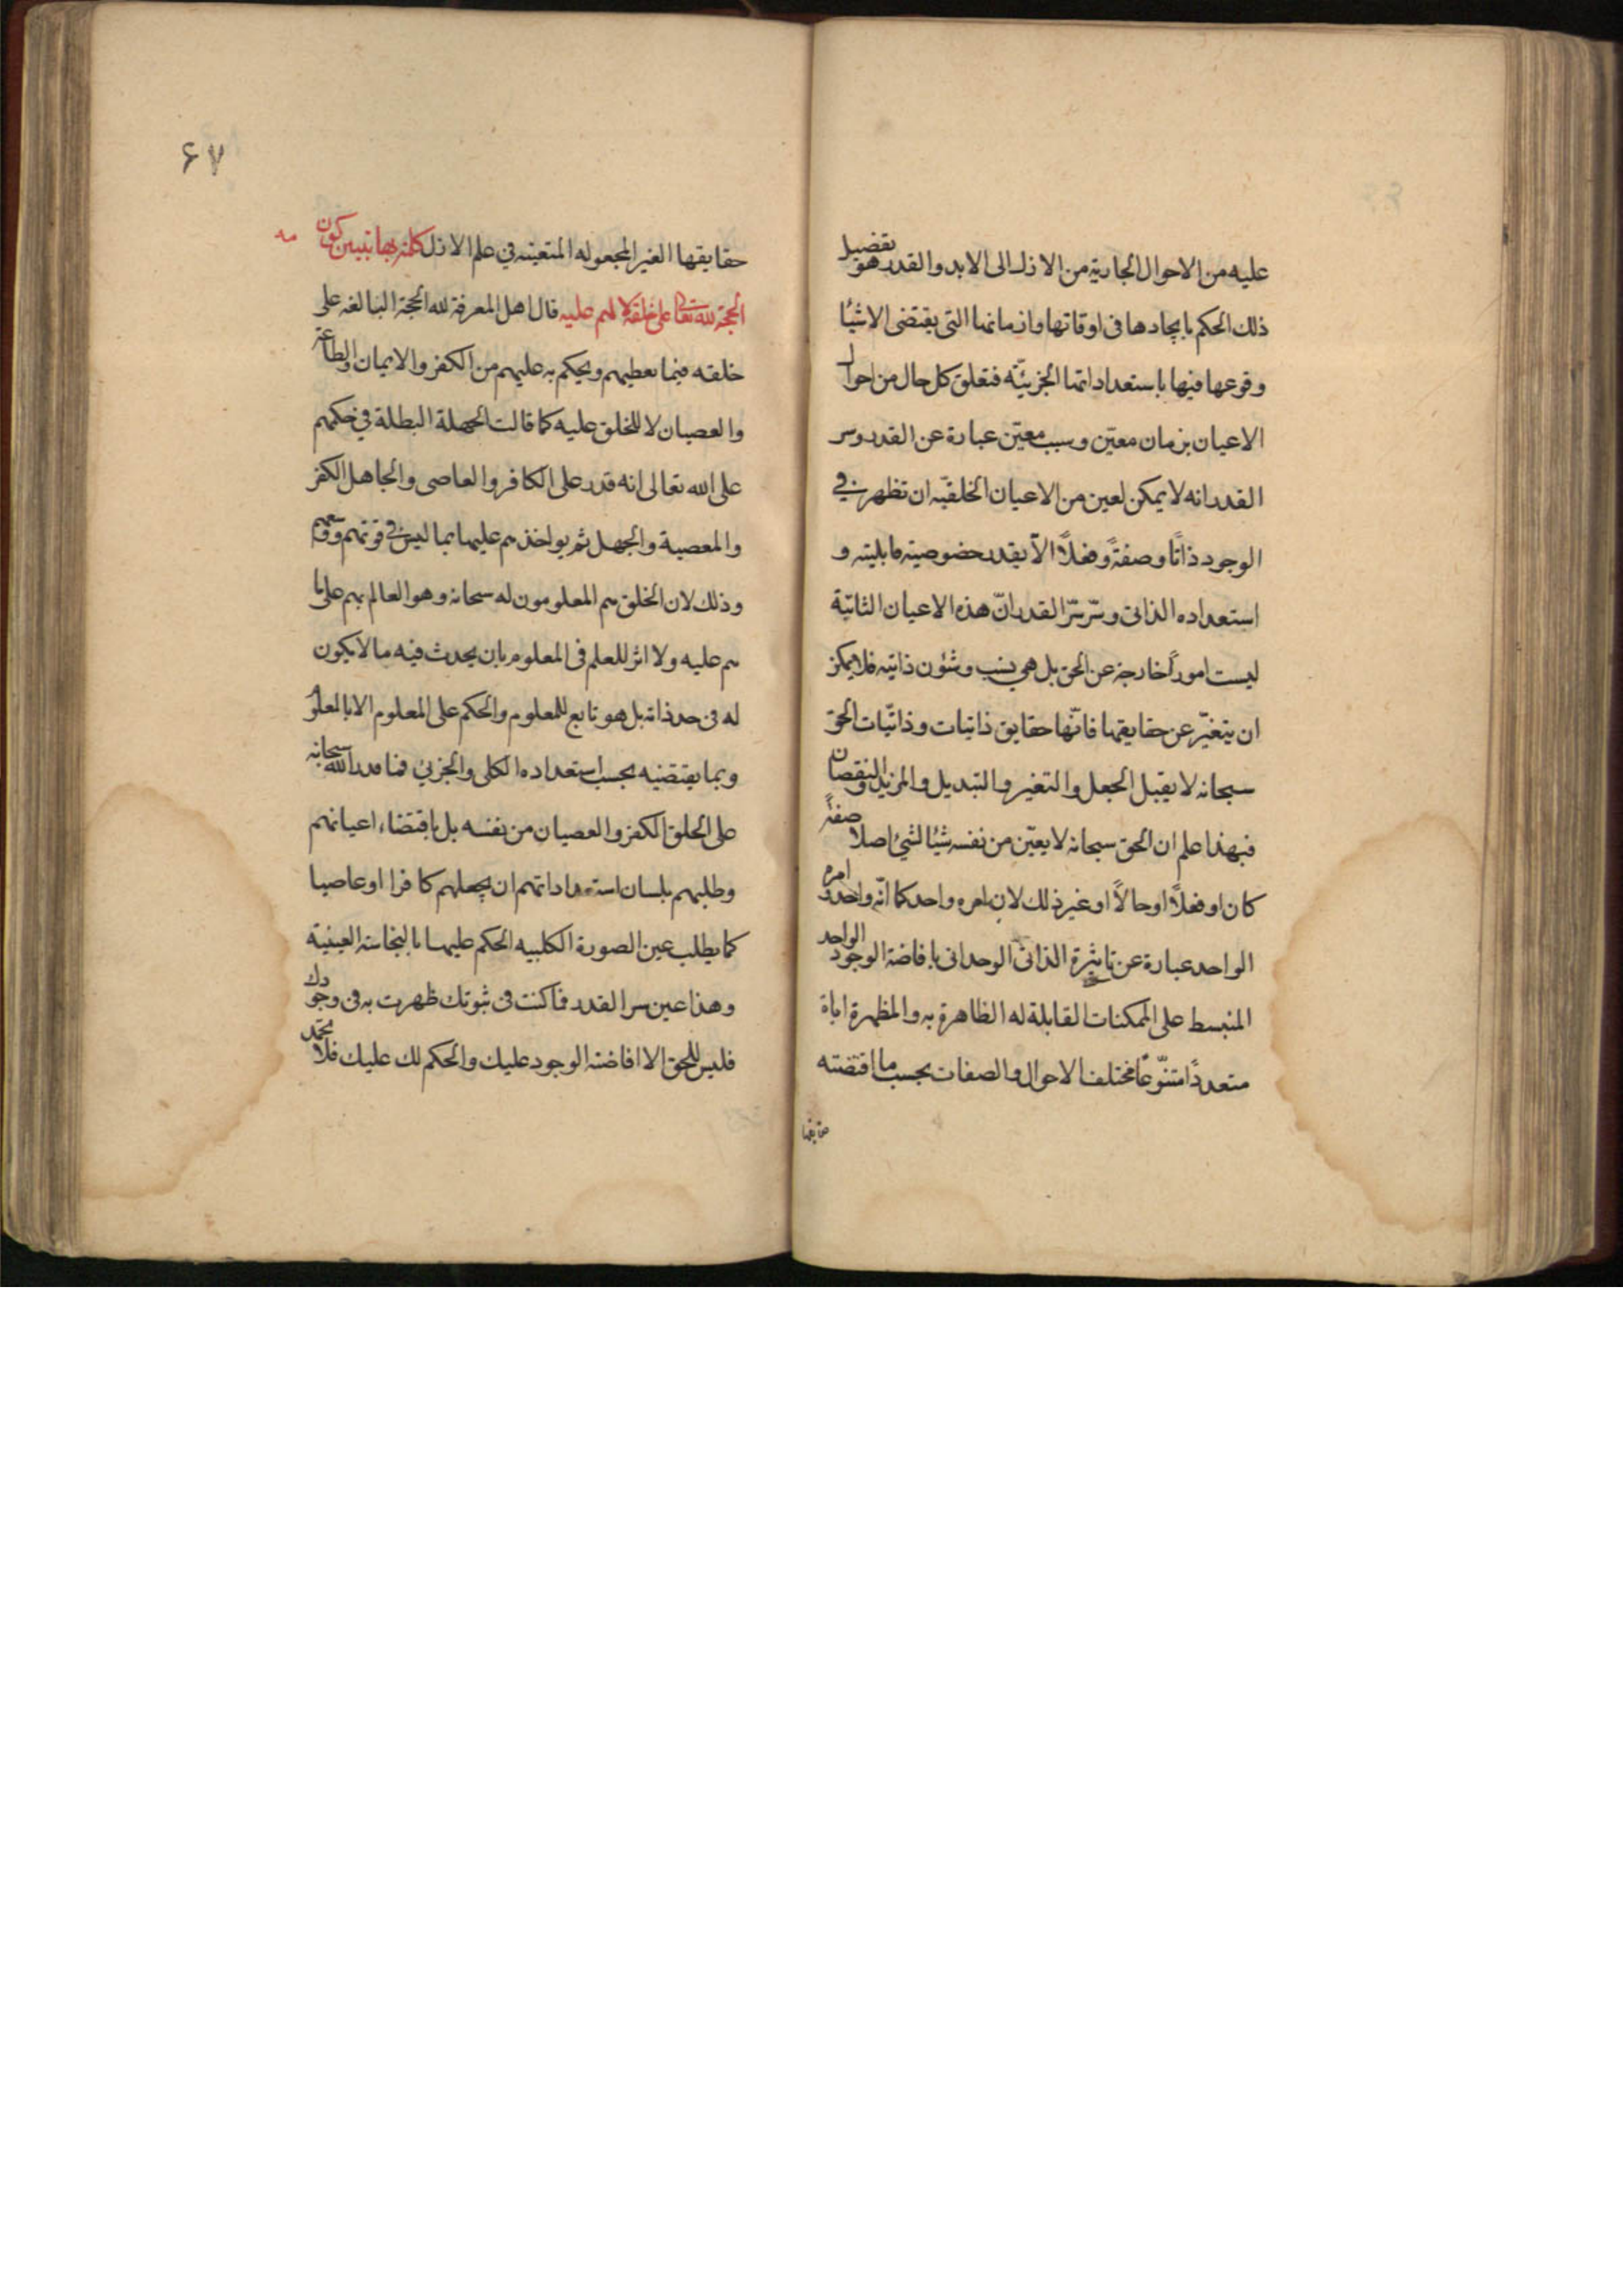 عليه من الاحوال الجارية من الازل الى الابد والقدر هو تفصيل
ذلك الحكم بايجادها فى اوقاتها وازمانها التى يقتضى الاشيا
وقوعها فيها باستعداداتها الجزئيّة فتعلق كل حال من احوال
الاعيان بزمان معيّن وسبب معيّن عبارة عن القدر وسر
القدر انه لا يمكن لعين من الاعيان الخلقيّه ان تظهر فى
الوجود ذاتًا وصفةً وفعلًا الّا بقدر خصوصيته قابليته و
استعداده الذاتى وسّر سّر القدر انّ هذه الاعيان الثابتة
ليست امورًا خارجة عن الحق بل هي نسب وشئون ذاتيه فلا يمكن
ان يتغيّر عن حقايقها فانّها حقايق ذاتيات وذاتيّات الحق
سبحانه لا يقبل الجعل والتغير والتبديل والمزيد والنقصان
فبهذا علم ان الحق سبحانه لا يعيّن من نفسه شيئا لشئ اصلا صفةً
كان او فعلًا او حالًا او غير ذلك لان امره واحد كما انّه واحد وامره
الواحد عبارة عن تاثيره الذاتى الوحدانى بافاضة الوجود الواحد
المنبسط على الممكنات القابلة له الظاهرة به والمظهرة اياه
متعددًا متنوّعًا مختلف الاحوال والصفات بحسب ما اقتضته
حقايقها
۶۷
حقايقها الغير المجعوله المتعينه فى علم الازل كلمة بها تبيين كون
الحجة لله تعالى على خلقه لا لهم عليه قال اهل المعرفة لله الحجة البالغه على
خلقه فيما يعطيهم ويحكم به عليهم من الكفر والايمان والطاعة
والعصيان لا للخلق عليه كما قالت الجهلة البطلة فى حكمهم
على الله تعالى انه قدر على الكافر والعاصى والجاهل الكفر
والمعصية والجهل ثم يواخذهم عليها بما ليس فى قوتهم ووسعهم
وذلك لان الخلق هم المعلومون له سبحانه وهو العالم بهم على ما
هم عليه ولا اثر للعلم فى المعلوم بان يحدث فيه ما لا يكون
له فى حد ذاته بل هو تابع للمعلوم والحكم على المعلوم الا بالمعلوم
وبما يقتضيه بحسب استعداده الكلى والجزئى فما قدر الله سبحانه
على الخلق الكفر والعصيان من نفسه بل باقتضاء اعيانهم
وطلبهم بلسان استعداداتهم ان يجعلهم كافرا او عاصيا
كما يطلب عين الصورة الكلبيه الحكم عليها بالنجاسة العينية
وهذا عين سر القدر فما كنت فى ثبوتك ظهرت به فى وجودك
فليس للحق الا افاضة الوجود عليك والحكم لك عليك فلا تحمد